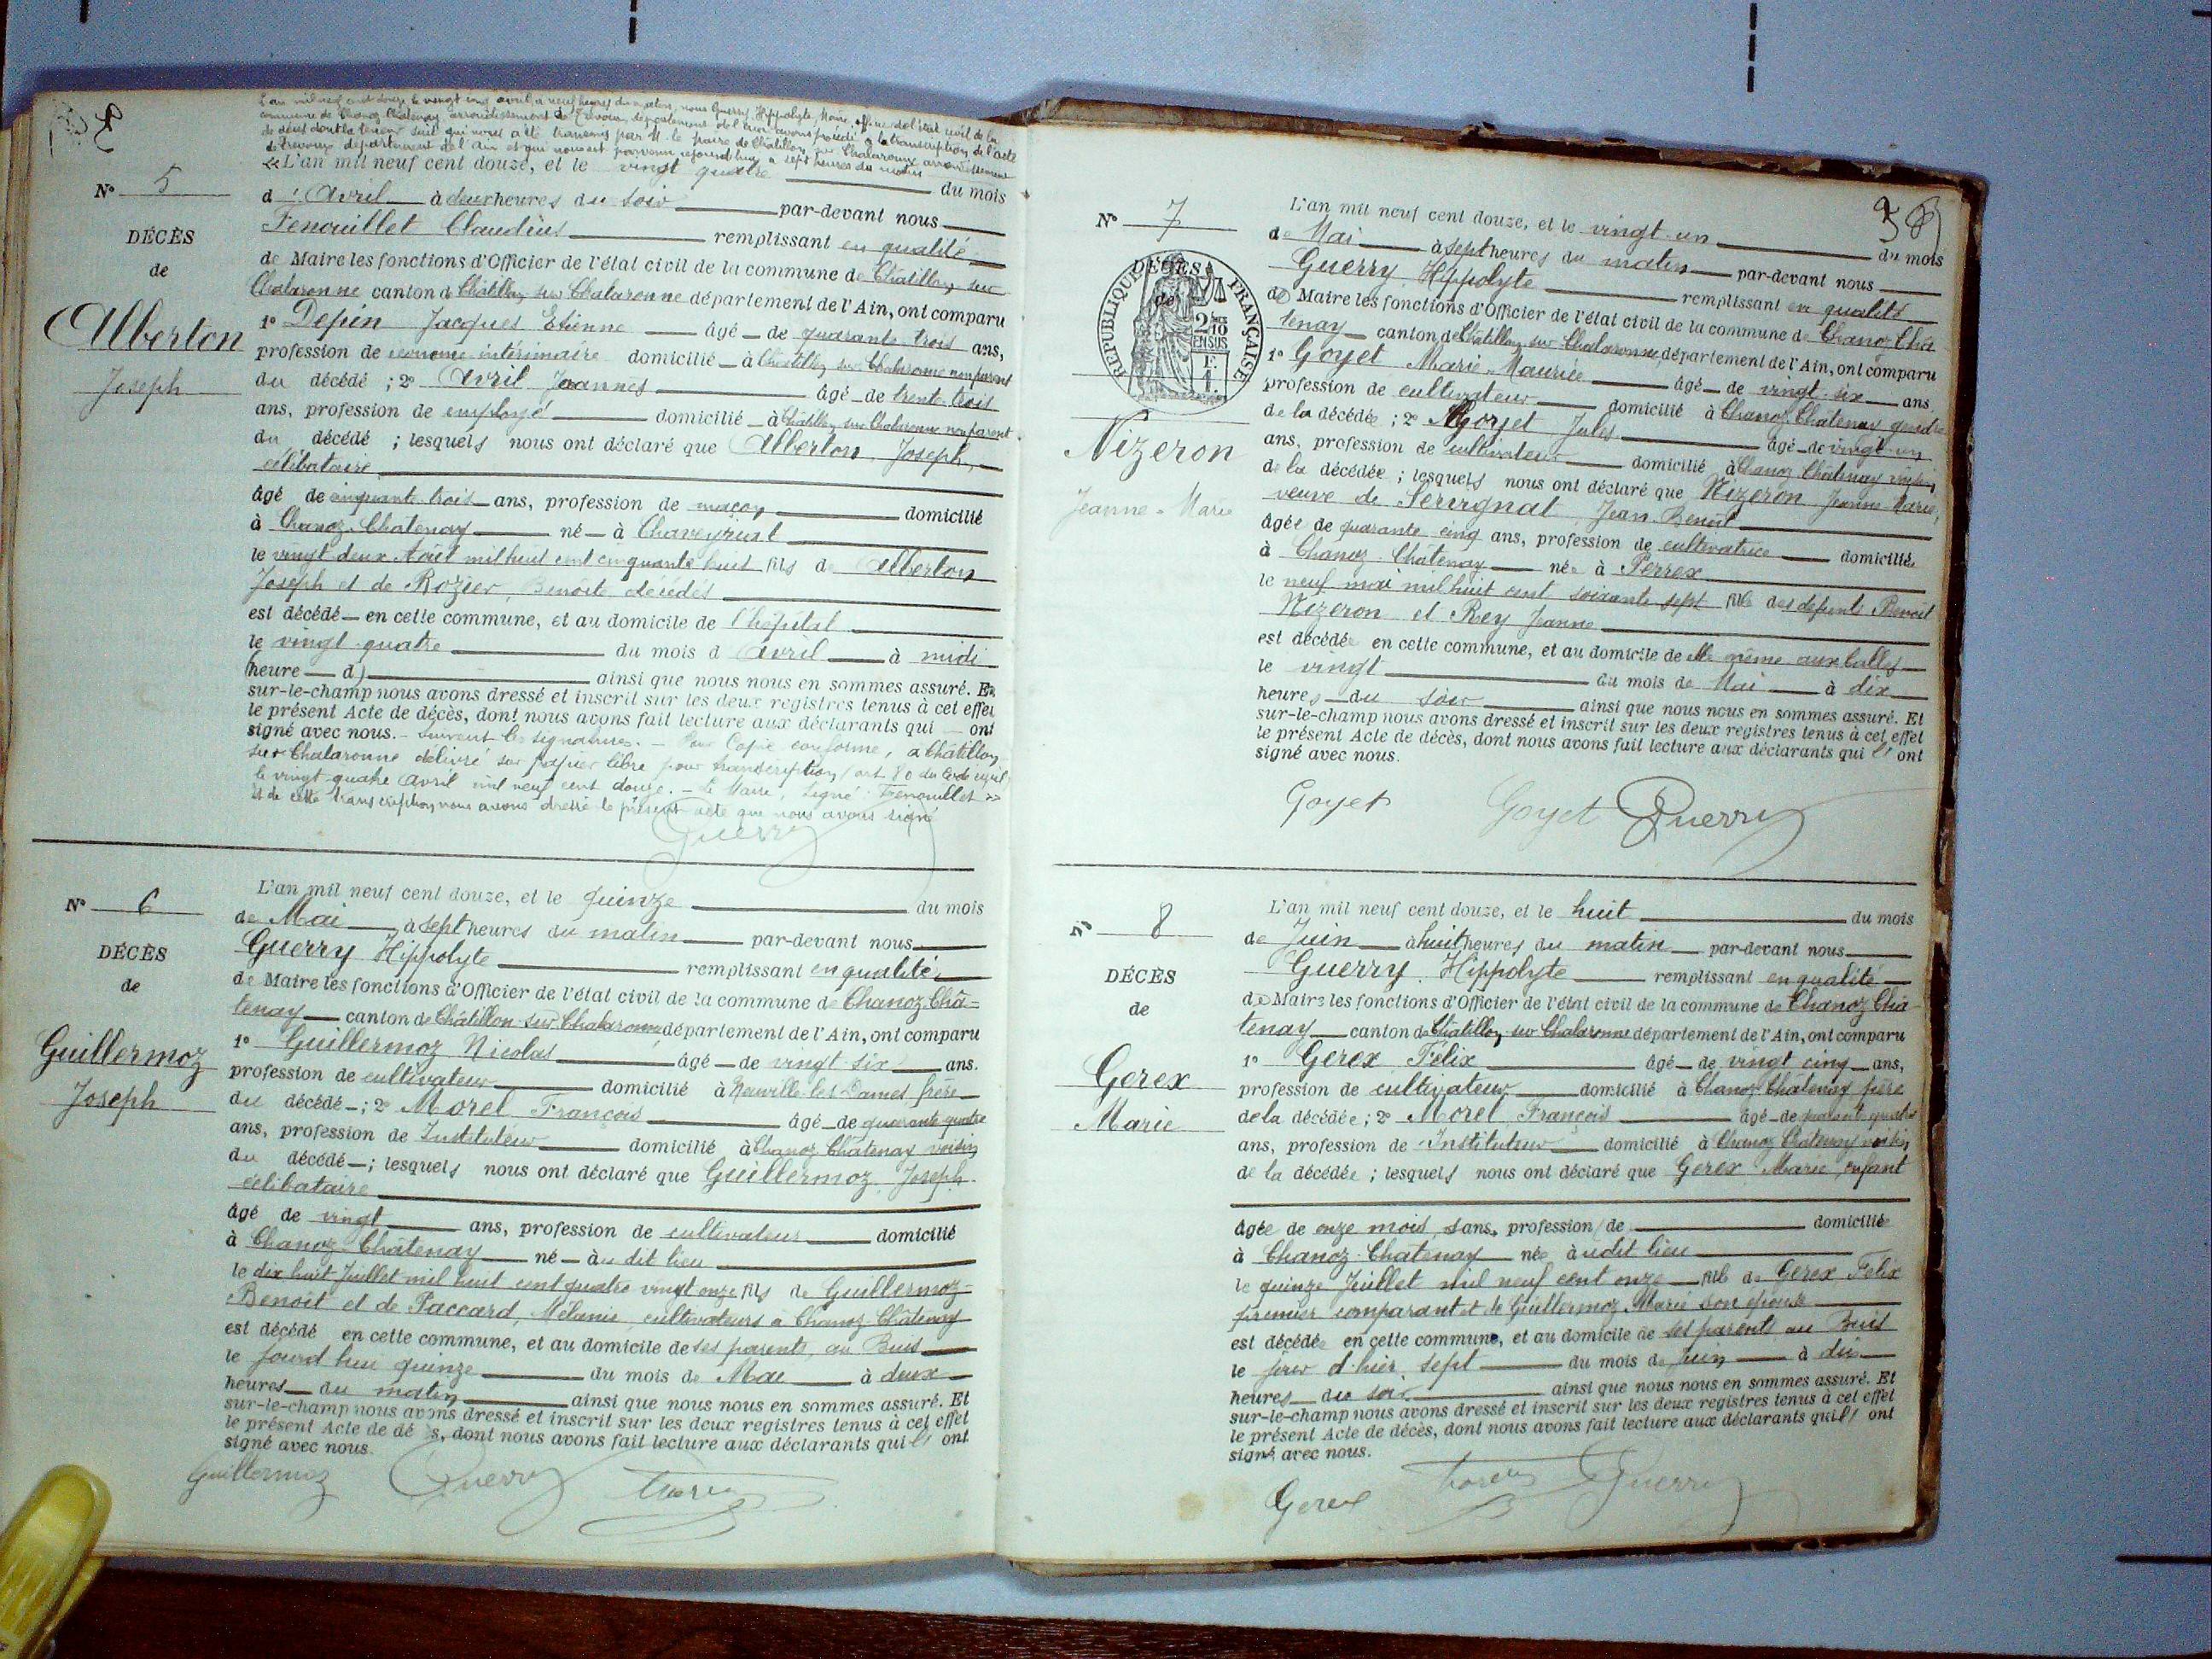 L'an mil neuf cent douze le vingt cinq avril à neuf heures du matin, nous Guerry Hippolyte, Maire, officier de l'état civil de la
commune de Chanoz-Chatenay arrondissement de Trevoux, département de l'Ain avons procédé à la transcription de l'acte
de décès dont la teneur suit qui nous a été transmis par M. le Maire de Châtillon sur Chalaronne arrondissement
de Trevoux département de l'Ain et qui nous est parvenu aujourd'hui à sept heures du matin
N° 5
DÉCÈS
de
Alberton
Joseph
« L'an mil neuf cent douze, et le vingt quatre du mois
d'Avril à deux heures du soir par-devant nous
Fenouillet Claudius remplissant en qualité
de Maire les fonctions d'Officier de l'état civil de la commune de Châtillon sur
Chalaronne canton de Châtillon sur Chalaronne département de l'Ain, ont comparu
1° Depin Jacques Etienne âgé de quarante trois ans,
profession de econome intérimaire domicilié à Châtillon sur Chalaronne non parent
du décédé ; 2° Avril Joannes âgé de trente trois
ans, profession de employé domicilié à Châtillon sur Chalaronne non parent
du décédé ; lesquels nous ont déclaré que Alberton Joseph,
célibataire
âgé de cinquante trois ans, profession de maçon domicilié
à Chanoz-Chatenay né à Chaveyriat
le vingt deux Août mil huit cent cinquante huit fils de Alberton
Joseph et de Rozier, Benoite décédés
est décédé en cette commune, et au domicile de l'hôpital
le vingt quatre du mois d'Avril à midi
(heure d) ainsi que nous nous en sommes assuré. Et
sur-le-champ nous avons dressé et inscrit sur les deux registres tenus à cet effet
le présent Acte de décès, dont nous avons fait lecture aux déclarants qui ont
signé avec nous. – Suivent les signatures. – Pour Copie conforme, à Châtillon
sur Chalaronne délivré sur papier libre pour transcription (art 80 du Code civil)
le vingt-quatre Avril mil neuf cent douze. – Le Maire, Signé : Fenouillet »
et de cette transcription nous avons dressé le présent acte que nous avons signé
Guerry
N° 6
DÉCÈS
de
Guillermoz
Joseph
L'an mil neuf cent douze, et le quinze du mois
de Mai à sept heures du matin par-devant nous
Guerry Hippolyte remplissant en qualité
de Maire les fonctions d'Officier de l'état civil de la commune de Chanoz Châ=
tenay canton de Châtillon-sur-Chalaronne département de l'Ain, ont comparu
1° Guillermoz Nicolas âgé de vingt six ans.
profession de cultivateur domicilié à Neuville-les-Dames frère
du décédé ; 2° Morel François âgé de quarante quatre
ans, profession de Instituteur domicilié à Chanoz Châtenay voisin
du décédé ; lesquels nous ont déclaré que Guillermoz Joseph
célibataire
âgé de vingt ans, profession de cultivateur domicilié
à Chanoz-Châtenay né au dit lieu
le dix huit Juillet mil huit cent quatre vingt onze fils de Guillermoz
Benoît et de Paccard, Mélanie, cultivateurs à Chanoz-Châtenay
est décédé en cette commune, et au domicile de ses parents, au Buis
le jourd'hui quinze du mois de Mai à deux
heures du matin ainsi que nous nous en sommes assuré. Et
sur-le-champ nous avons dressé et inscrit sur les deux registres tenus à cet effet
le présent Acte de dé s, dont nous avons fait lecture aux déclarants qui ont
signé avec nous.
Guillermoz Guerry Morel
N° 7
RÉPUBLIQUE FRANÇAISE
DÉCÈS
de
2/10 EN SUS
F.
1.
Nizeron
Jeanne-Marie
L'an mil neuf cent douze, et le vingt un du mois
de Mai à sept heures du matin par-devant nous
Guerry Hippolyte remplissant en qualité
de Maire les fonctions d'Officier de l'état civil de la commune de Chanoz Châ
tenay canton de Châtillon sur Chalaronne, département de l'Ain, ont comparu
1° Goyet Marie-Maurice âgé de vingt six ans
profession de cultivateur domicilié à Chanoz Châtenay gendre
de la décédée ; 2° Goyet Jules âgé de vingt un
ans, profession de cultivateur domicilié à Chanoz Châtenay voisin
de la décédée ; lesquels nous ont déclaré que Nizeron Jeanne Marie,
veuve de Servignat Jean Benoît
âgée de quarante cinq ans, profession de cultivatrice domiciliée
à Chanoz-Chatenay née à Perrex
le neuf mai mil huit cent soixante sept fille des défunts Benoit
Nizeron et Rey Jeanne
est décédée en cette commune, et au domicile de elle même aux
le vingt du mois de Mai à dix
heures du soir ainsi que nous nous en sommes assuré. Et
sur-le-champ nous avons dressé et inscrit sur les deux registres tenus à cet effet
le présent Acte de décès, dont nous avons fait lecture aux déclarants qui ont
signé avec nous.
Goyet Goyet Guerry
N° 8
DÉCÈS
de
Gerex
Marie
L'an mil neuf cent douze, et le huit du mois
de Juin à huit heures du matin par-devant nous
Guerry Hippolyte remplissant en qualité
de Maire les fonctions d'Officier de l'état civil de la commune de Chanoz Châ
tenay canton de Châtillon sur Chalaronne département de l'Ain, ont comparu
1° Gerex Félix âgé de vingt cinq ans,
profession de cultivateur domicilié à Chanoz Châtenay père
de la décédée ; 2° Morel François âgé de quarante quatre
ans, profession de Instituteur domicilié à Chanoz Châtenay voisin
de la décédée ; lesquels nous ont déclaré que Gerex Marie enfant
âgée de onze mois, sans profession de domiciliée
à Chanoz-Chatenay née audit lieu
le quinze Juillet mil neuf cent onze fille de Gerex Felix
premier comparant et de Guillermoz Marie son épouse
est décédée en cette commune, et au domicile de ses parents au Buis
le jour d'hier sept du mois de Juin à dix
heures du soir ainsi que nous nous en sommes assuré. Et
sur-le-champ nous avons dressé et inscrit sur les deux registres tenus à cet effet
le présent Acte de décès, dont nous avons fait lecture aux déclarants qui ont
signé avec nous.
Gerex Morel Guerry